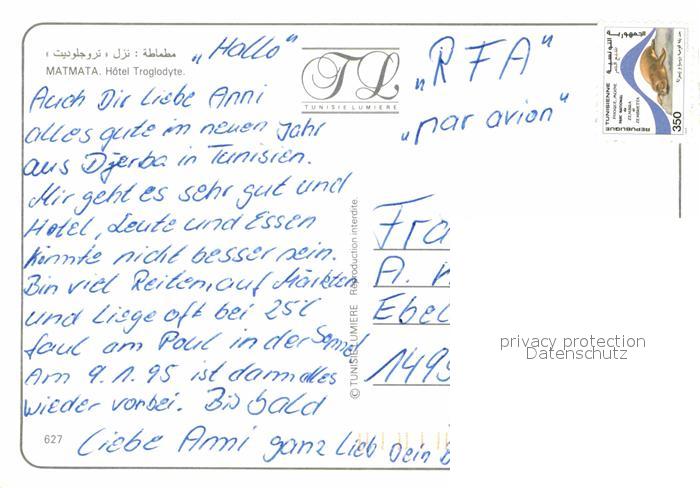 مطماطة : نزل « تروجلوديت »
MATMATA. Hôtel Troglodyte.
„Hallo"
TL
TUNISIE LUMIERE
„RFA"
„par avion"
الجمهورية التونسية
REPUBLIQUE TUNISIENNE
PARC NATIONAL
DE
ZEMBRA
ET
ZEMBRETTA
350
Auch Dir liebe Anni
alles gute im neuen Jahr
aus Djerba in Tunisien.
Mir geht es sehr gut und
Hotel, Leute und Essen
könnte nicht besser sein.
Bin viel Reiten, auf Märkten
und Liege oft bei 25°C
faul am Poul in der Sonne!
Am 9.1.95 ist dann alles
wieder vorbei. Bis bald
Liebe Anni ganz Lieb Dein
© TUNISIE LUMIERE Reproduction interdite.
Fra
A.
Ebel
1495
privacy protection
Datenschutz
627